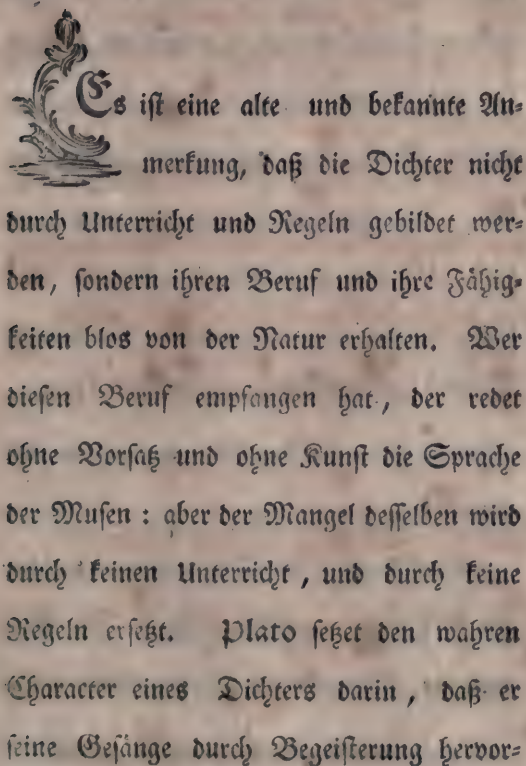 Es ist eine alte und bekannte An-
merkung, daß die Dichter nicht
durch Unterricht und Regeln gebildet wer-
den, sondern ihren Beruf und ihre Fähig-
keiten blos von der Natur erhalten. Wer
diesen Beruf empfangen hat, der redet
ohne Vorsatz und ohne Kunst die Sprache
der Musen: aber der Mangel desselben wird
durch keinen Unterricht, und durch keine
Regeln ersetzt. Plato setzet den wahren
Character eines Dichters darin, daß er
seine Gesänge durch Begeisterung hervor-